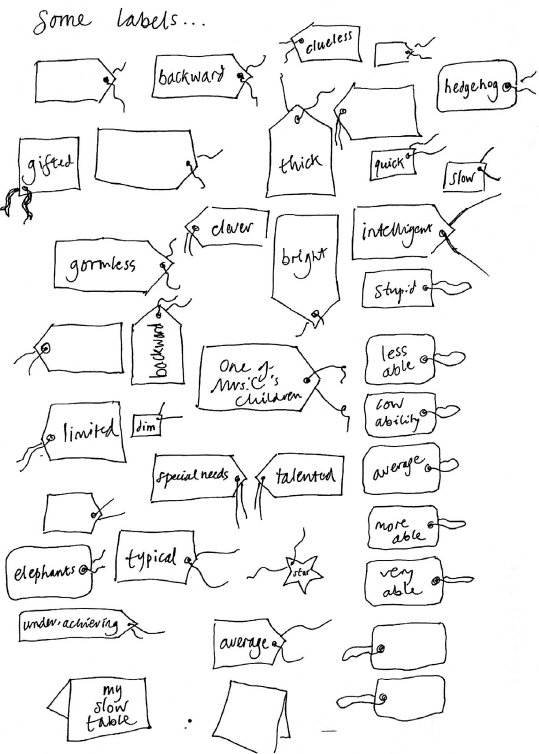 Some labels...
clueless
backward
hedgehog
gifted
thick
quick
slow
clever
intelligent
gormless
bright
stupid
backward
One of
Mrs. C's
children
less
able
limited
dim
low
ability
special needs
talented
average
more
able
elephants
typical
star
very
able
under-achieving
average
my
slow
table